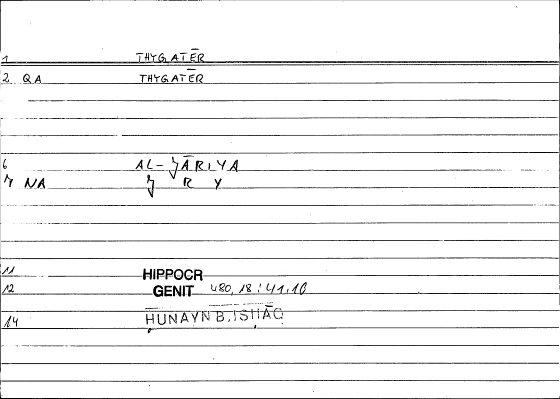 1 THYGATĒR
2 QA THYGATĒR
6 AL-JĀRIYA
7 NA J R Y
11 HIPPOCR
12 GENIT 480,18:41,10
14 ḤUNAYN B. ISḤĀQ